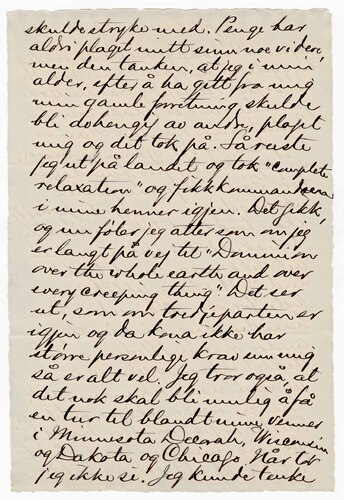 skulde stryke med. Penge har
aldri plaget mitt sinn noe videre,
men den tanken, at jeg i min
alder, efter å ha gitt fra mig
min gamle forretning, skulde
bli avhengig av andre, plaget
mig og det tok på. Så reiste
jeg ut på landet og tok "complete
relaxation" og fikk kommandoen
i mine henner igjen. Det gikk,
og nu føler jeg atter som om jeg
er langt på vej til "Dominion
over the whole earth and over
every creeping thing". Det ser
ut, som om tredjeparten er
igjen og da kona ikke har
større personlige krav enn mig
så er alt vel. Jeg tror også, at
det nok skal bli mulig å få
en tur til blandt mine venner
i Minnesota Decorah, Wisconsin
og Dakota og Chicago. Når tør
jeg ikke si. Jeg kunde tenke